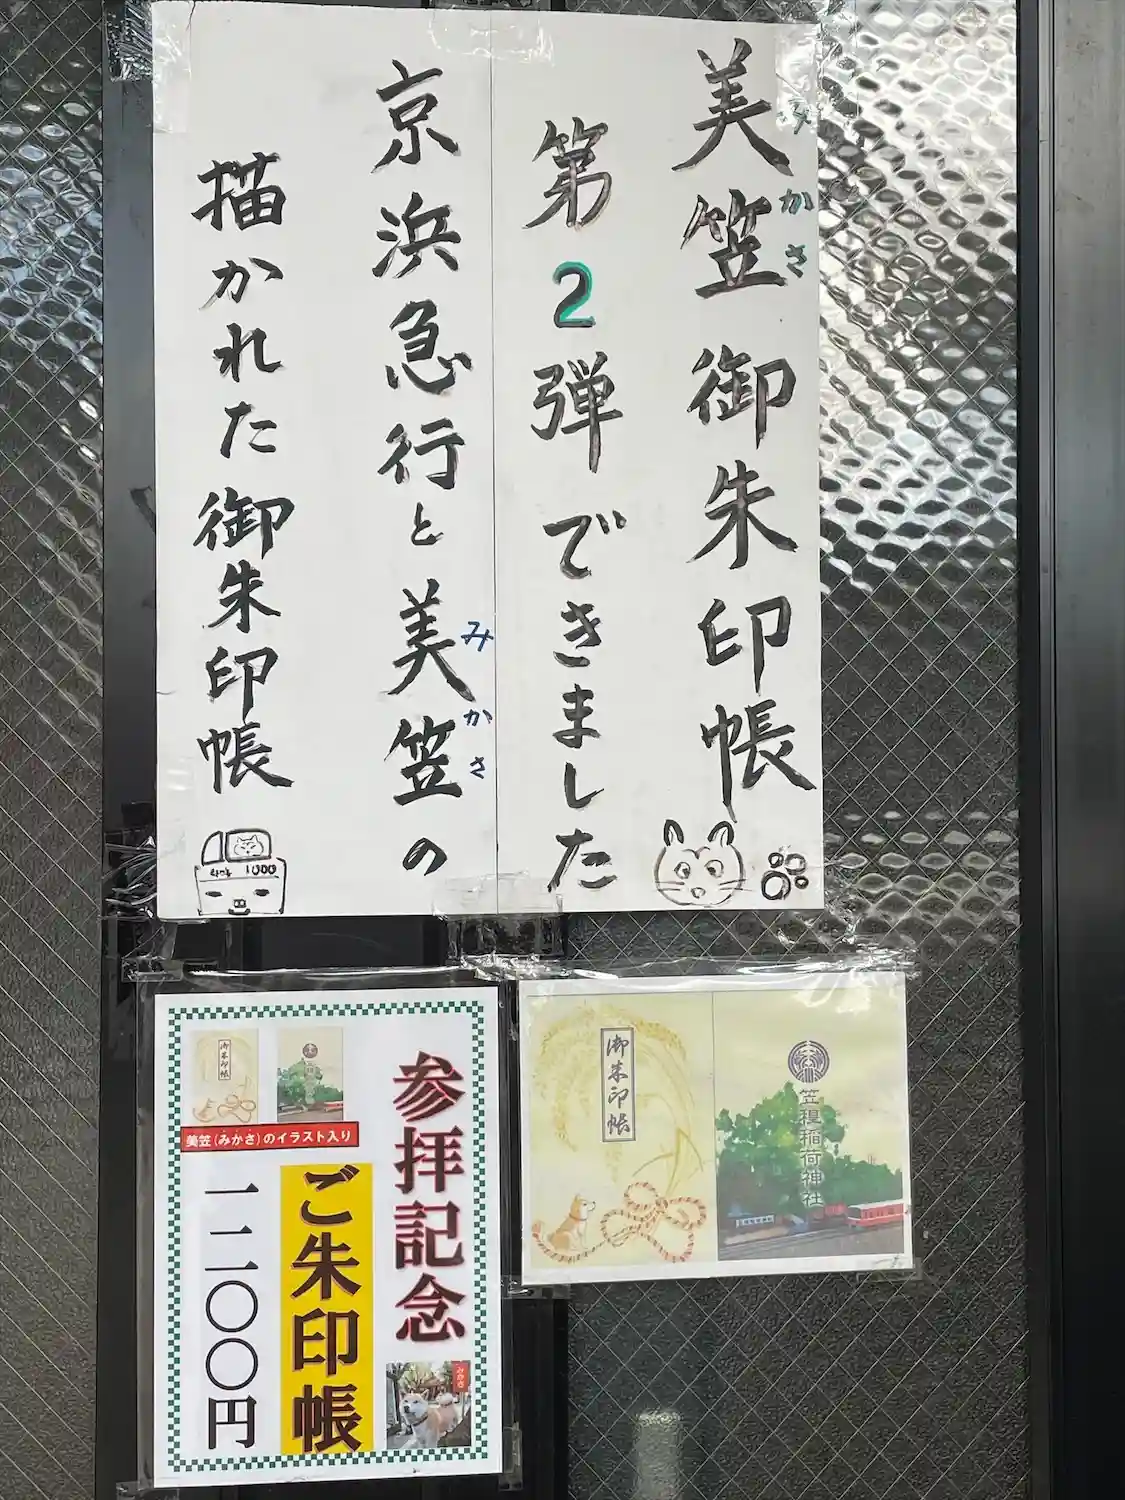 美笠御朱印帳
みかさ
第2弾できました
京浜急行と美笠の
みかさ
描かれた御朱印帳
1000
参拝記念
ご朱印帳
一二〇〇円
御朱印帳
美笠(みかさ)のイラスト入り
みかさ
御朱印帳
笠䅣稲荷神社